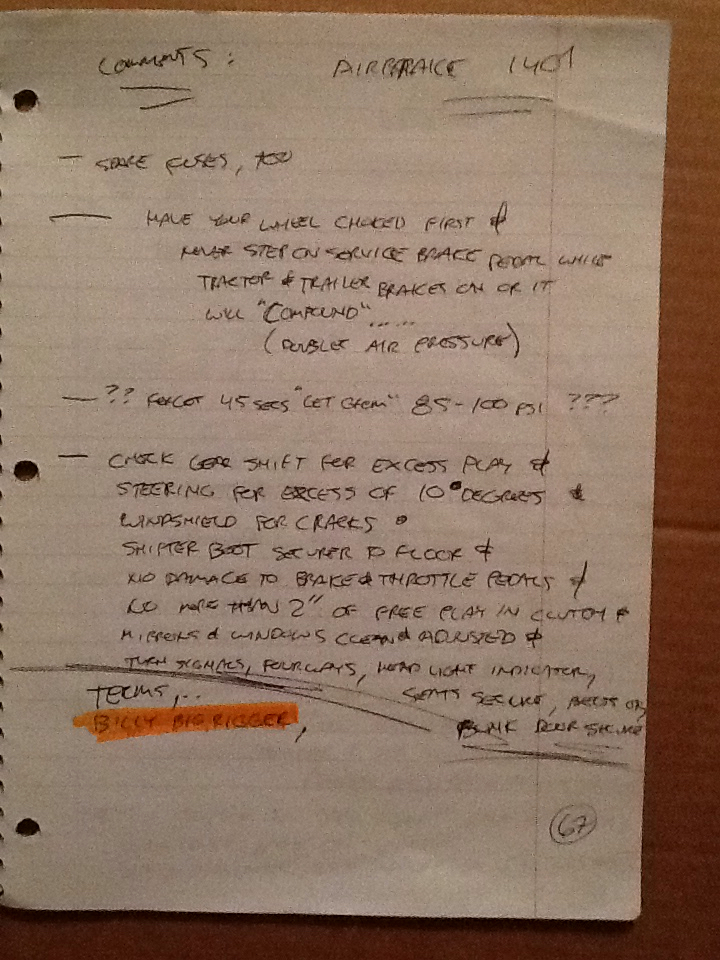 COMMENTS : AIRBRAKE 1401
— SPARE FUSES, TOO
— HAVE YOUR WHEEL CHOKED FIRST &
NEVER STEP ON SERVICE BRAKE PEDAL WHILE
TRACTOR & TRAILER BRAKES ON OR IT
WILL "COMPOUND" .....
(DOUBLET AIR PRESSURE)
— ?? 45 SECS "CET GHEM" 85-100 PSI ???
— CHECK GEAR SHIFT FOR EXCESS PLAY &
STEERING FOR EXCESS OF 10° DEGREES &
WINDSHIELD FOR CRACKS
SHIFTER BOOT SECURER TO FLOOR &
NO DAMAGE TO BRAKE & THROTTLE PEDALS &
NO MORE THAN 2" OF FREE PLAY IN CLUTCH &
MIRRORS & WINDOWS CLEAN & ADJUSTED &
TURN SIGNALS, FOURWAYS, HEAD LIGHT INDICATOR,
SEATS SECURE, BELTS OK,
BUNK DOOR SECURE
TERMS,..
BILLY BIG RIGGER,
67